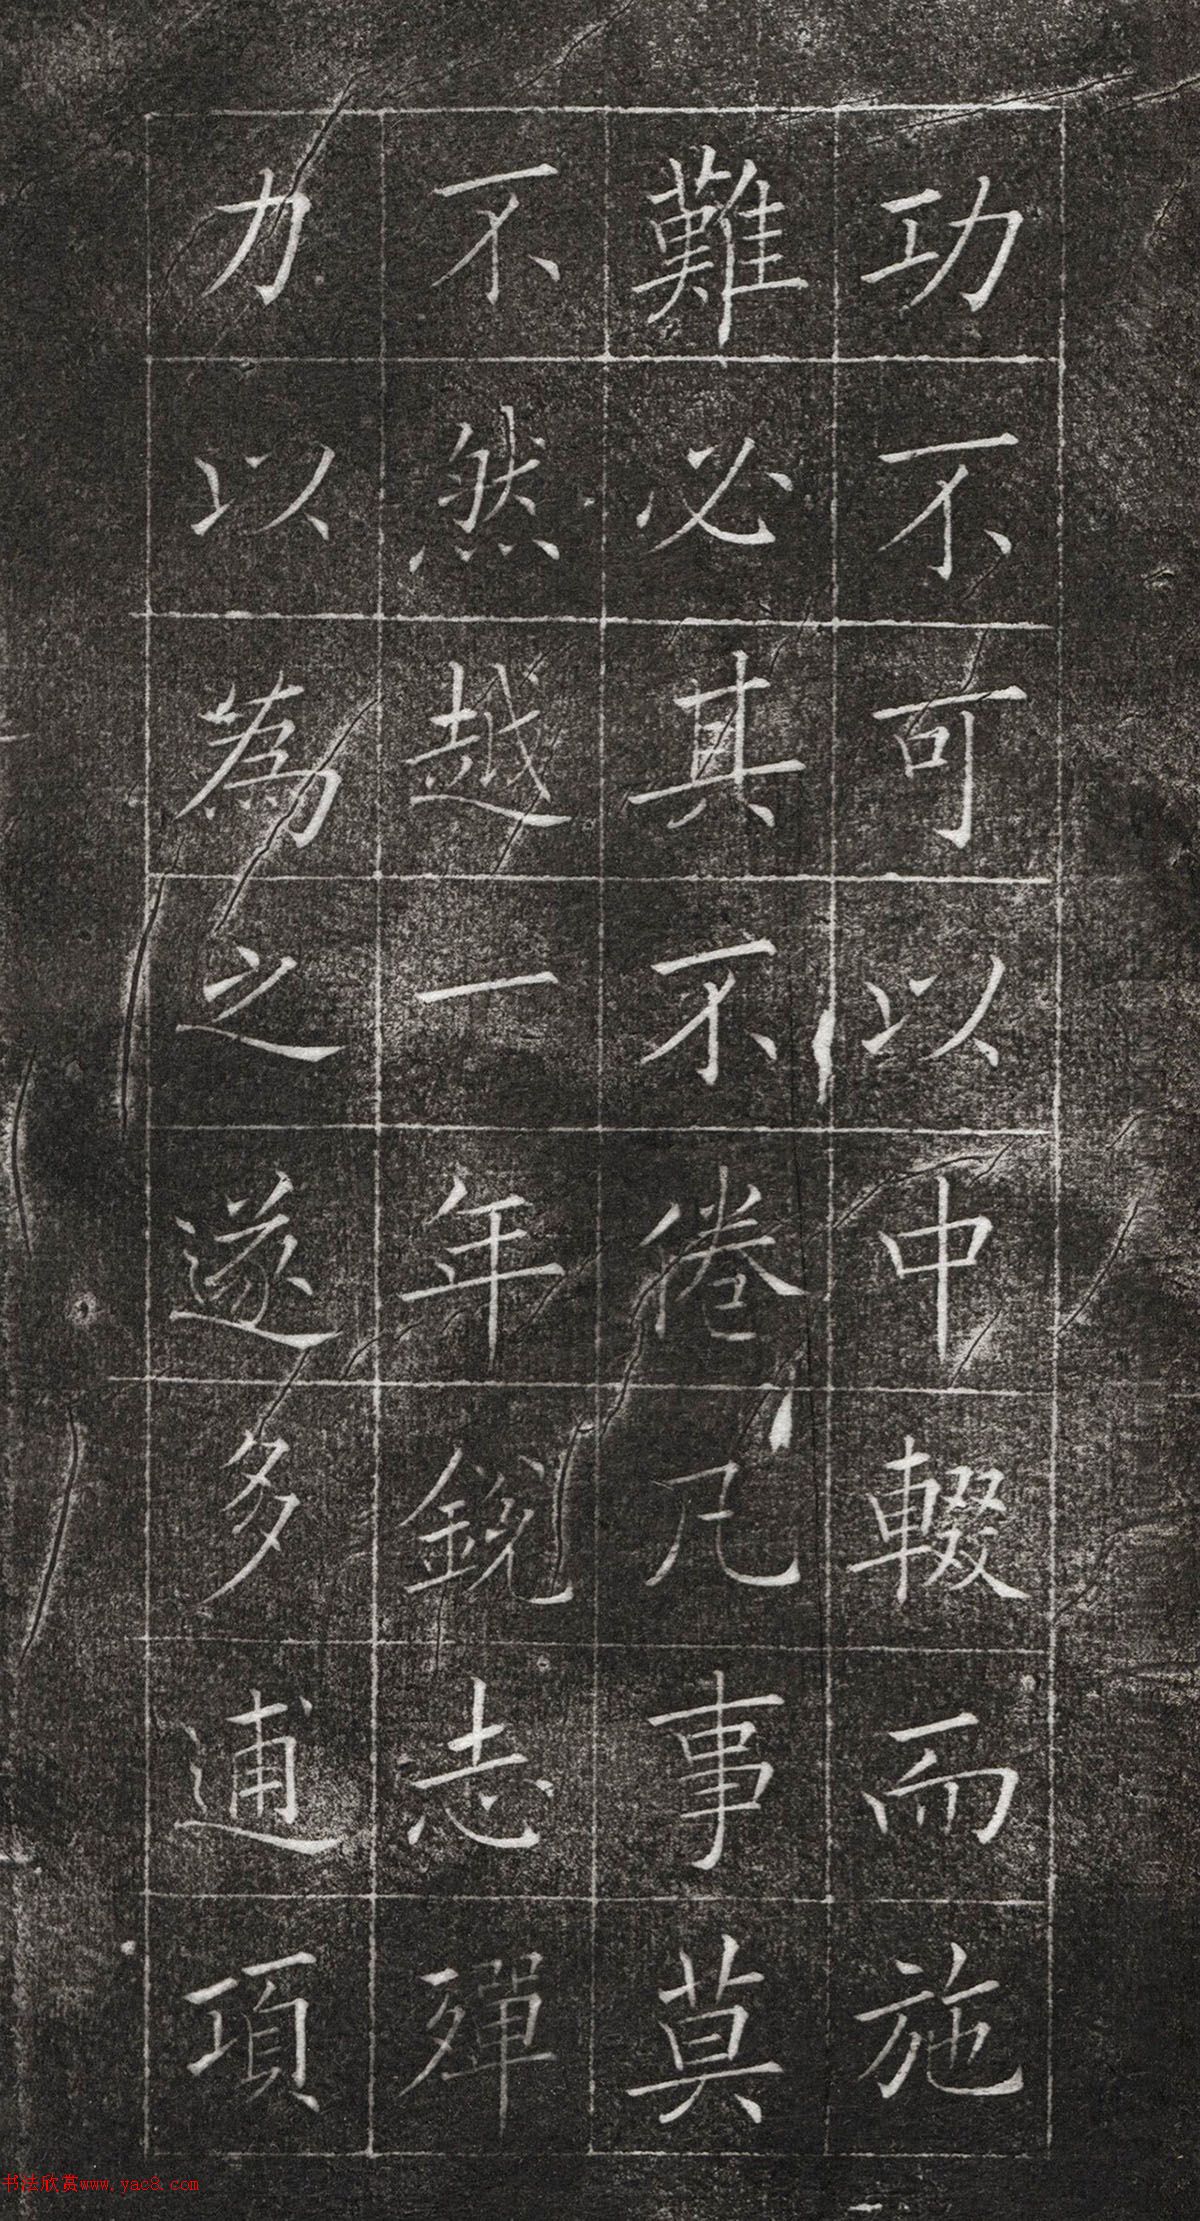 功不可以中輟而施
難必其不倦凡事莫
不然越一年銳志殫
力以為之遂多逋項
书法欣赏www.yac8.com